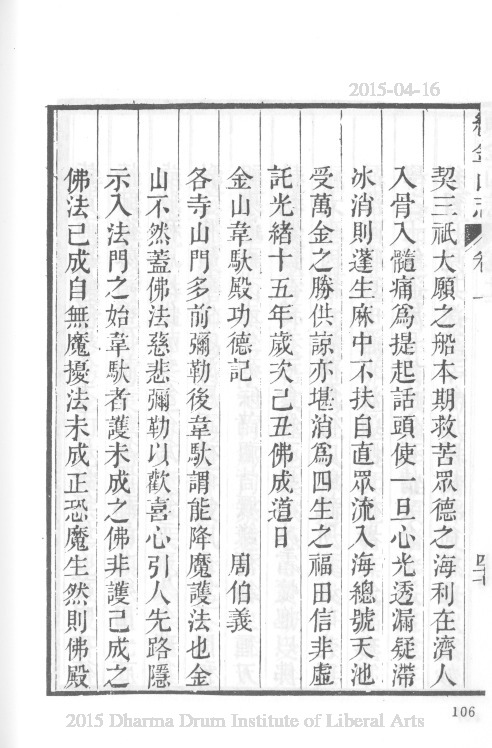 2015-04-16
契三祇大願之船本期救苦眾德之海利在濟人
入骨入髓痛爲提起話頭使一旦心光透漏疑滯
冰消則蓬生麻中不扶自直眾流入海總號天池
受萬金之勝供諒亦堪消爲四生之福田信非虛
託光緒十五年歲次己丑佛成道日
金山韋馱殿功德記 周伯義
各寺山門多前彌勒後韋馱謂能降魔護法也金
山不然蓋佛法慈悲彌勒以歡喜心引人先路隱
示入法門之始韋馱者護未成之佛非護已成之
佛法已成自無魔擾法未成正恐魔生然則佛殿
106
2015 Dharma Drum Institute of Liberal Arts